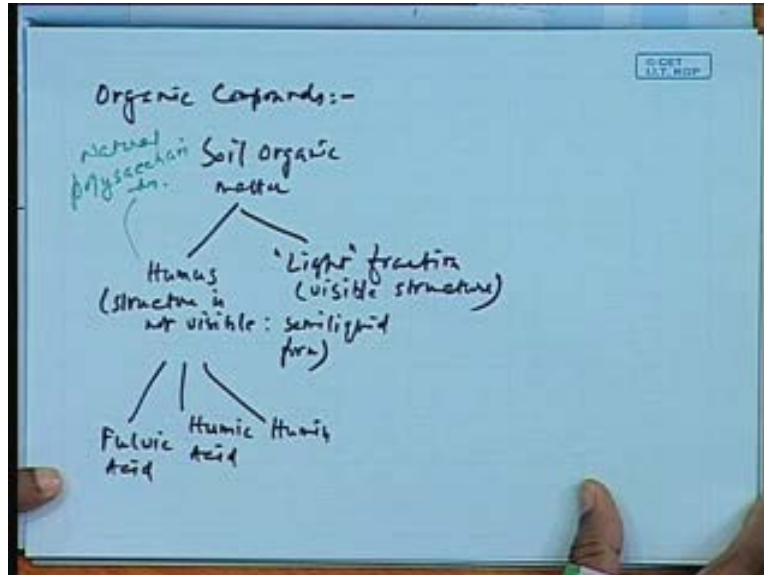 © CET
I.I.T. KGP
Organic Compounds:-
Natural
polysacchari
des.
Soil Organic
matter
Humus
(structure is
not visible : semiliquid
form)
"Light" fraction
(visible structure)
Fulvic
Acid
Humic
Acid
Humin